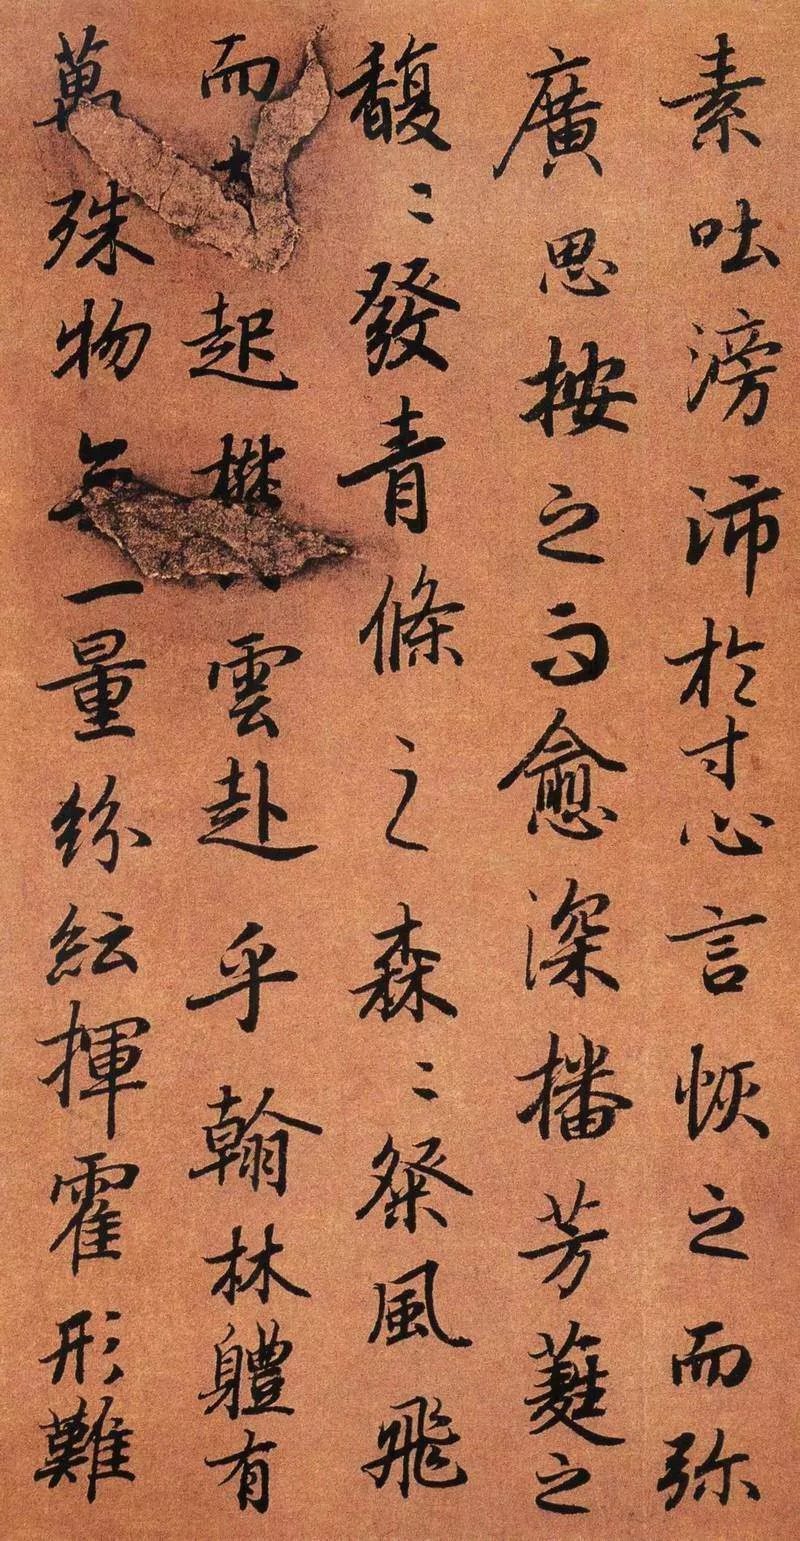 素吐滂沛於寸心言恢之而弥
廣思按之而愈深播芳蕤之
馥〻發青條之森〻粲風飛
而起欝雲赴乎翰林軆有
萬殊物無一量紛紜揮霍形難